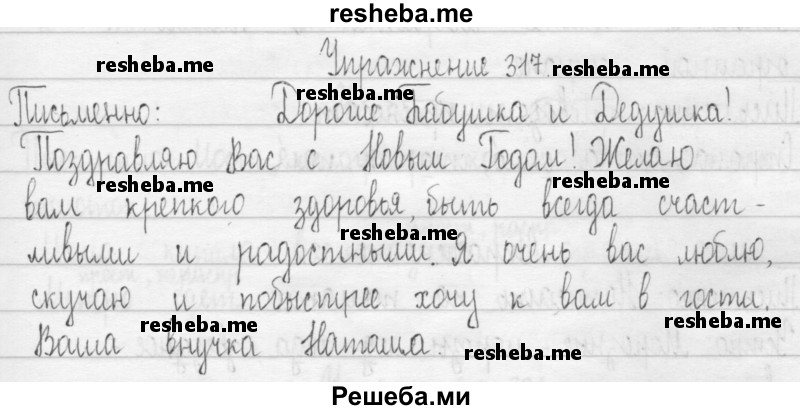 resheba.me
Упражнение 317.
resheba.me resheba.me
Письменно: Дорогие Бабушка и Дедушка!
resheba.me
Поздравляю Вас с Новым Годом! Желаю
resheba.me resheba.me
вам крепкого здоровья, быть всегда счаст-
resheba.me
ливыми и радостными. Я очень вас люблю,
скучаю и побыстрее хочу к вам в гости.
resheba.me resheba.me
Ваша внучка Наташа.
resheba.me
Решеба.ми